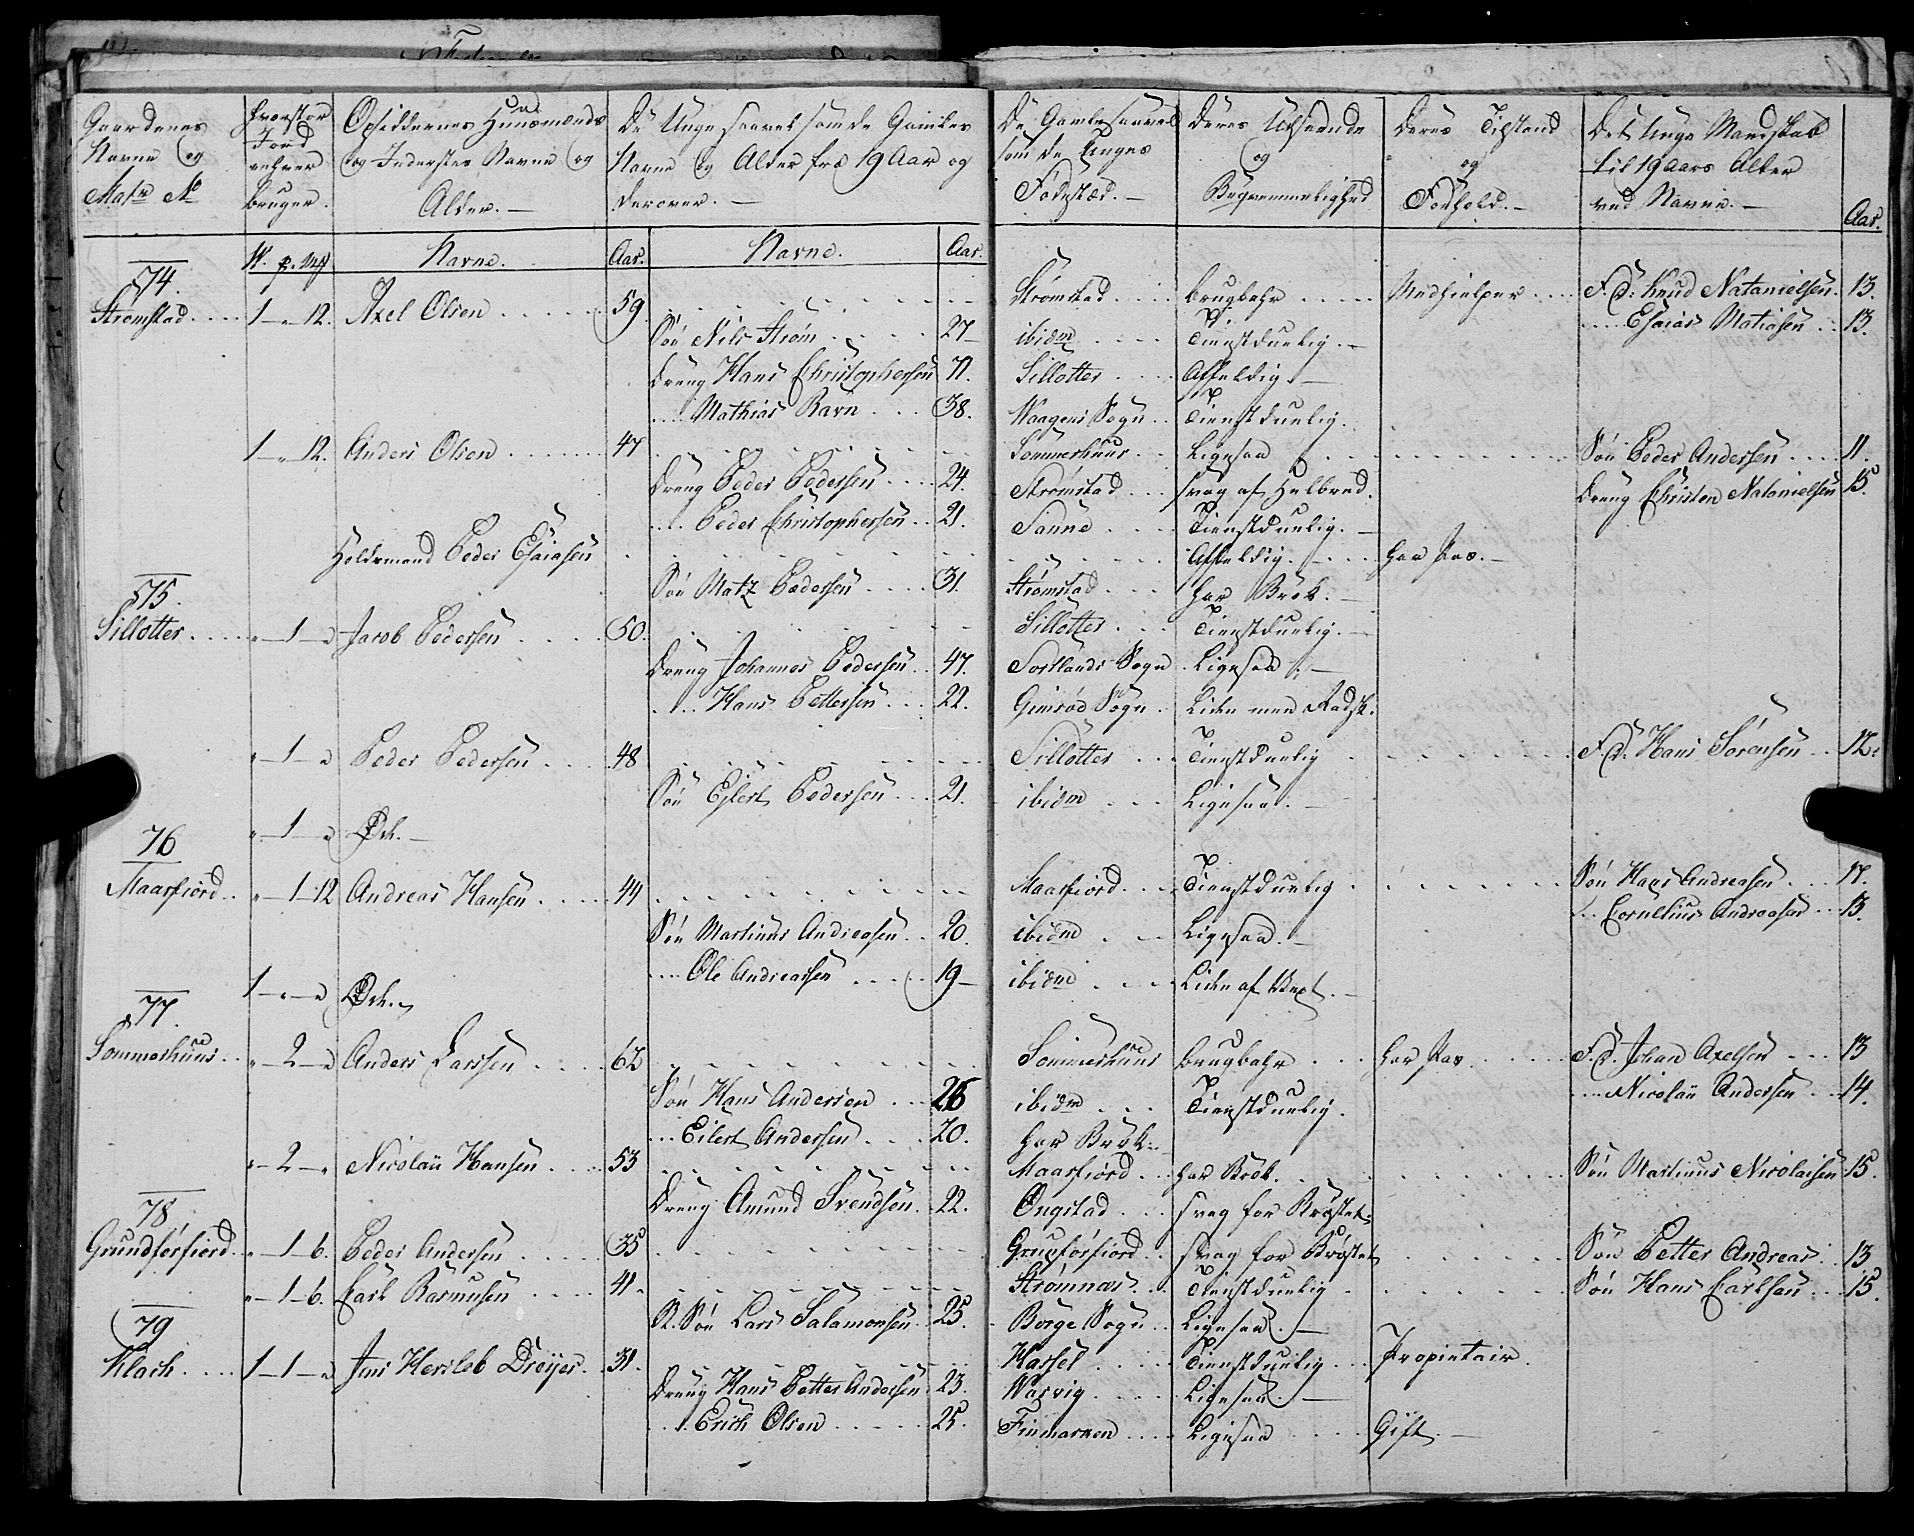 Gaardenes Navne og Matr No
Hvorstor Jord enhver bruger.
Opsiddernes Huusmænds og Inderstes Navne og Alder. —
De Unge saavel som de Gamles Navne og Alder fra 19 Aar og derover. —
De Gamle saavel som de Unges Fødestæd. —
Deres Udseende og Beqvemmelighed
Deres Tilstand og Forhold. —
Det Unge Mandskab til 19 Aars Alder ved Navne. —
Aar.
W. p. Mk Navne. Aar. Navne. Aar.
74.
Strømstad 1 - " 12. Axel Olsen 59. Strømstad brugbahr Medhielper F. d: Knud Natanielsen 13.
Søn Nils Strøm 27 ibidm Tienstduelig. — Esaias Matiasen 13.
Dreng Hans Christophersen 71. Sillotter Affeldig. —
Mathias Ravn 38. Waagens Sogn Tienstduelig.
1 - " 12. Anders Olsen 47 Sommerhuus Ligesaa Søn Peder Andersen 11.
Dreng Peder Pedersen 24. Strømstad svag af Helbred. Dreng Christen Natanielsen 15.
Peder Christophersen 21. Sanne Tienstduelig. —
Holdemand Peder Esaiasen Affeldig. har Pas. —
Søn Matz Pedersen 31. Strømstad har Brok. —
75.
Sillotter " - 1 - " Jacob Pedersen 50. Sillotter Tienstduelig. —
Dreng Johannes Pedersen 47. Sortlands Sogn Ligesaa. —
Hans Pettersen 22. Gimsød Sogn Liden men Radsk.
" - 1 - " Peder Pedersen 48 Sillotter Tienstduelig F. d. Hans Sørensen 12.
Søn Ejlert Pedersen 21. ibidm Ligesaa. —
" - 1 - " Øde. —
76
Maarfiord " - 1 - 12 Andreas Hansen 44 Maarfiord Tienstduelig Søn Hans Andreasen 17.
Cornelius Andreasen 13.
Søn Martinus Andreasen 20. ibidm Ligesaa. —
Ole Andreassen 19 - ibidm Liden af Vext. —
1 - " - " Øde.
77.
Sommerhuus " - 2 - " Anders Larsen 62 Sommerhuus brugbahr har Pas F. d. Johan Axelsen 13
Søn Hans Andersen 26 ibidm Tienstduelig. Nicolaü Andersen 14.
Eilert Andersen 20. har Brok.
" - 2 - " Nicolaü Hansen 53 Maarfiord har Brok. Søn Martinus Nicolaisen 15.
Dreng Amund Svendsen 22. Ongstad svag for Brøstet.
78.
Grundførfiord " - 1 - 6. Peder Andersen 35 Grunførfiord svag for Brøstet Søn Petter Andreas 13
" - 1 - 6. Carl Rasmusen 41. Strømnæs Tienstduelig Søn Hans Carlsen 15.
St. Søn Lars Salamonsen 25. Borge Sogn Ligesaa. —
79
Klach 1 - 1 - " Jens Hersleb Dreyer 31. Hassel Tienstduelig Propietair.
Dreng Hans Petter Andersen 23. Warvig Ligesaa. —
Erich Olsen 25. Finmarken Ligesaa Gift. —